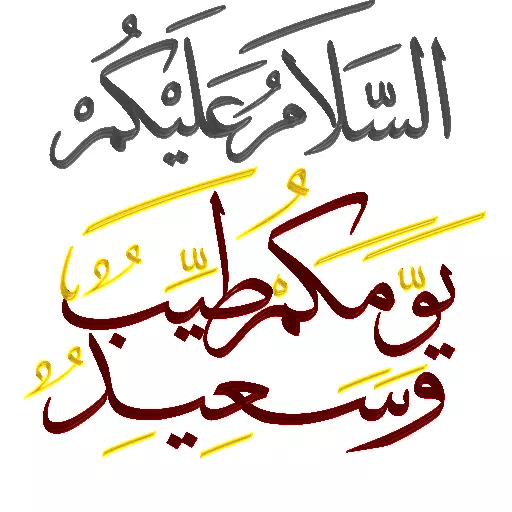 السَّلَامُ عَلَيْكُمْ
يوَّمَكُمْ طَيِّبٌ
وَسَعِيدٌ